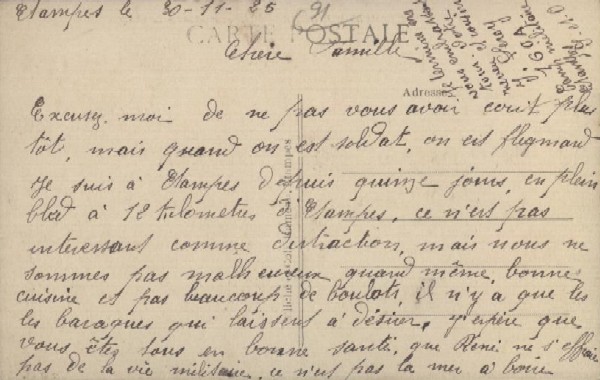 Etampes le 30-11-25
91
CARTE POSTALE
Chère Famille
Adresse
Excusez moi de ne pas vous avoir écrit plus
tôt, mais quand on est soldat, on est flegmard
Je suis à Etampes depuis quinze jours, en plein
bled à 12 kilomètres d'Etampes, ce n'est pas
interessant comme distraction, mais nous ne
sommes pas malheureux quand même, bonne
cuisine et pas beaucoup de boulots, il n'y a que les
les baraques qui laissent à désirer, J'espère que
vous êtes tous en bonne santé, que René ne s'effraie
pas de la vie militaire, ce n'est pas la mer à boire
Je termine en
vous embrassant
tous
neveu et cousin